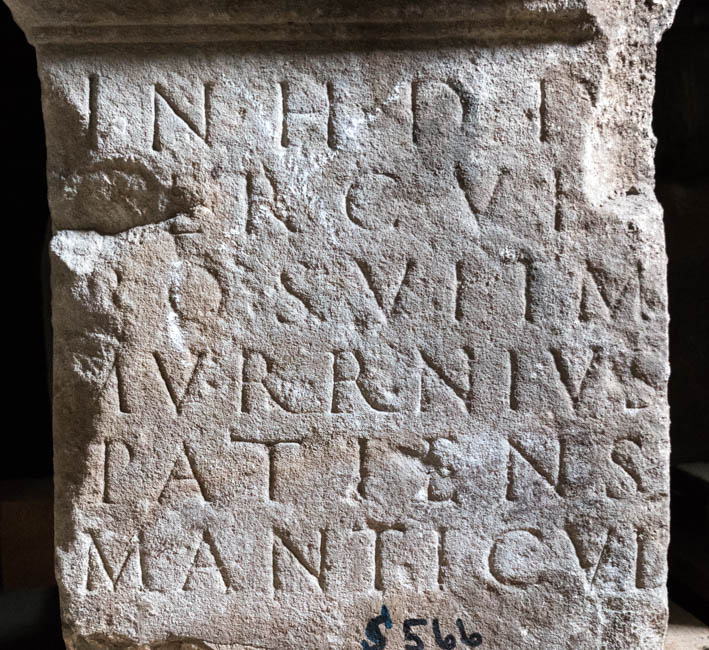 IN H D D
ERCVI
POSVIT M
MVRRNIVS
PATIENS
MANTICVL
S 566